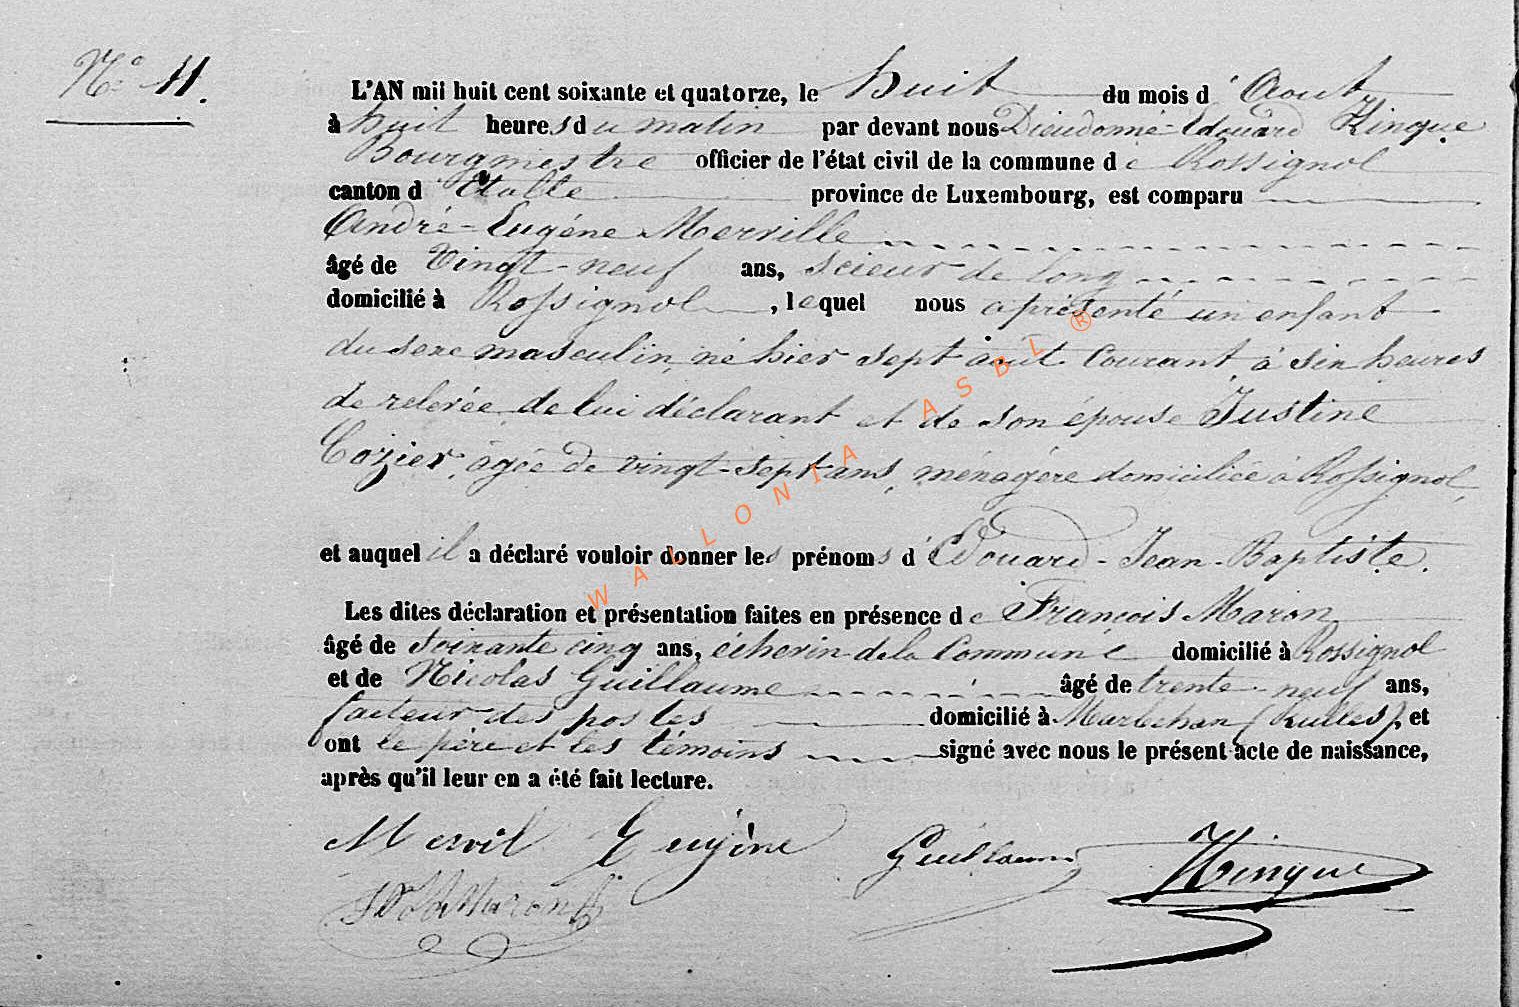 N° 11.
L'AN mil huit cent soixante et quatorze, le huit du mois d'Aout
à huit heures du matin par devant nous Dieudonné-Edouard Hinque
Bourgmestre officier de l'état civil de la commune de Rossignol
canton d'Etalle province de Luxembourg, est comparu
André-Eugène Merville
âgé de Vingt-neuf ans, scieur de long
domicilié à Rossignol, lequel nous a présenté un enfant
du sexe masculin, né hier sept août courant, à six heures
de relevée de lui déclarant et de son épouse Justine
Cozier, âgée de vingt-sept ans, ménagère domiciliée à Rossignol,
et auquel il a déclaré vouloir donner les prénoms d'Edouard-Jean-Baptiste.
Les dites déclaration et présentation faites en présence de François Maron
âgé de soixante cinq ans, échevin de la Commune domicilié à Rossignol
et de Nicolas Guillaume âgé de trente-neuf ans,
facteur des postes domicilié à Marbehan (Rulles), et
ont le père et les témoins signé avec nous le présent acte de naissance,
après qu'il leur en a été fait lecture.
Mervil Eugène Guillaume Hinque
Maron
WALLONIA ASBL ®